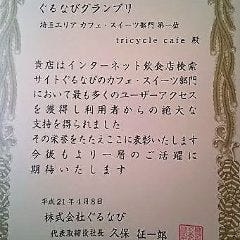 ぐるなびグランプリ
埼玉エリア カフェ・スイーツ部門 第一位
tricycle cafe 殿
貴店はインターネット飲食店検索
サイトぐるなびのカフェ・スイーツ部門
において最も多くのユーザーアクセス
を獲得し利用者からの絶大な
支持を得られました
その栄誉をたたえここに表彰いたします
今後もより一層のご活躍に
期待いたします
平成21年4月8日
株式会社ぐるなび
代表取締役社長 久保 征一郎